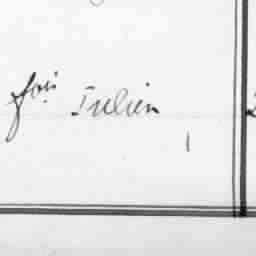 fois Julien